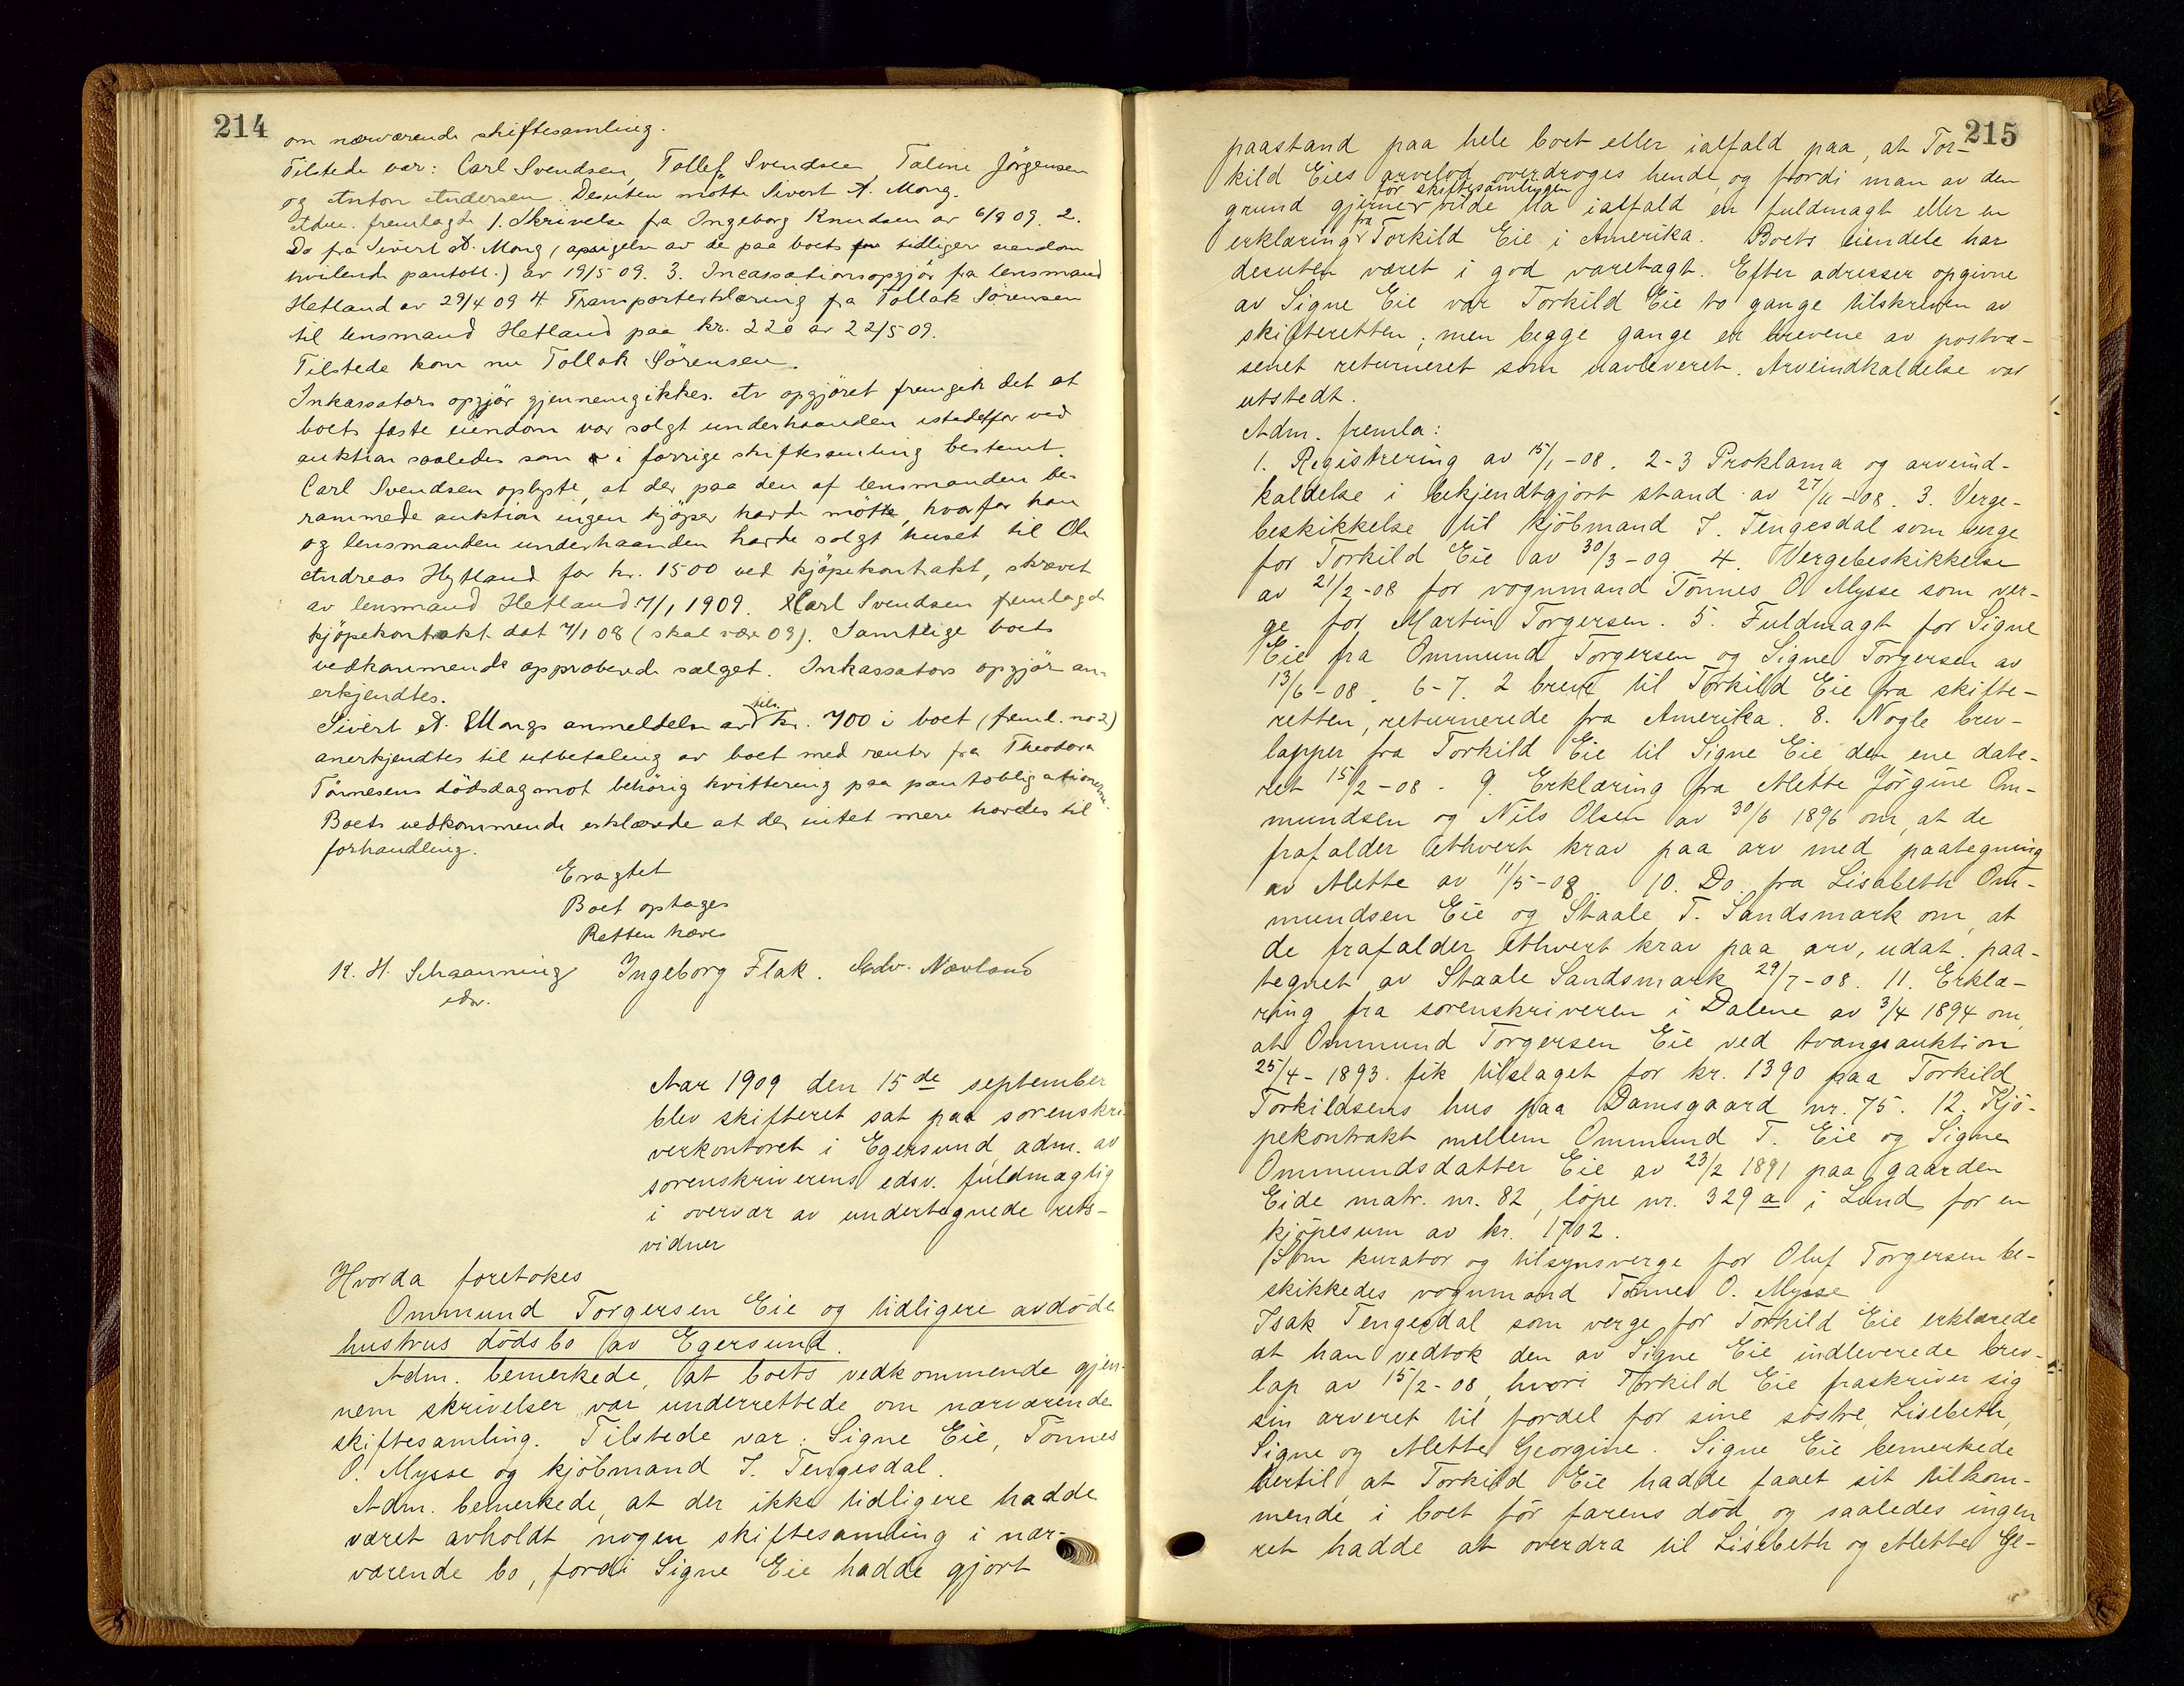 214
om nærværende skiftesamling.
Tilstede var: Carl Svendsen, Tollef Svendsen Taline Jörgensen
og Anton Andersen. Desuten mötte Sivert A. Mong.
Adm. fremlagde 1. Skrivelse fra Ingeborg Knudsen av 6/9 09. 2.
Do fra Sivert A. Mong, (apsigelse av de paa boets tidliger eiendom
hvilende pantobl.) av 19/5 09. 3. Incassationsopgjör fra lensmand
Hetland av 29/4 09 4 Transporterklæring fra Tollak Sörensen
til lensmand Hetland paa kr. 220 av 22/5 09.
Tilstede kom nu Tollak Sörensen.
Inkassators opgjör gjennemgikkes. Av opgjöret fremgik det at
boets faste eiendom var solgt underhaanden istedetfor ved
auktion saaledes som i forrige skiftesamling bestemt.
Carl Svendsen oplyste, at der paa den af lensmanden be-
rammede auktion ingen kjöper havde mötte, hvorfor han
og lensmanden underhaanden havde solgt huset til Ole
Andreas Hytland for kr. 1500 ved kjöpekontrakt, skrevet
av lensmand Hetland 7/1 1909. Carl Svendsen fremlagde
kjöpekontrakt dat 7/1 08 (skal være 09). Samtlige boets
vedkommende approberede salget. Inkassators opgjör an-
erkjendtes.
Sivert A. Mongs anmeldelse av kr. 700 i boet (freml. no 2)
anerkjendtes til utbetaling av boet med renter fra Theodora
Tönnesens dödsdag mot behörig kvittering paa pantobligationerne.
Boets vedkommende erklærede at der intet mere havdes til
forhandling.
Eragtet
Boet optages
Retten hævet
K. H. Schaanning Ingeborg Flak. Edv. Nævland
edsv.
Aar 1909 den 15de september
blev skifteret sat paa sorenskri-
verkontoret i Egersund, adm. av
sorenskriverens edsv. fuldmægtig
i overvær av undertegnede rets-
vidner
Hvorda foretokes
Ommund Torgersen Eie og tidligere avdöde
hustrus dödsbo av Egersund.
Adm. bemerkede, at boets vedkommende gjen-
nem skrivelser var underrettede om nærværende
skiftesamling. Tilstede var: Signe Eie, Tönnes
O. Mysse og kjöbmand I. Tengesdal.
Adm. bemerkede, at der ikke tidligere hadde
været avholdt nogen skiftesamling i nær-
værende bo, fordi Signe Eie hadde gjort
215
paastand paa hele boet eller ialfald paa, at Tor-
kild Eies arvelod overdroges hende, og fordi man av den
for skiftesamlingen
grund gjerne vilde ha ialfald en fuldmagt eller en
erklæring fra Torkild Eie i Amerika. Boets eiendele har
desuten været i god varetægt. Efter adresser opgivne
av Signe Eie var Torkild Eie to gange tilskreven av
skifteretten; men begge gange er brevene av postvæ-
senet returneret som uavleveret. Arveindkaldelse var
utstedt.
Adm. fremla:
1. Registrering av 15/1-08. 2-3 Proklama og arveind-
kaldelse i bekjendtgjort stand av 27/11-08. 3. Verge-
beskikkelse til kjöbmand I. Tengesdal som verge
for Torkild Eie av 30/3-09. 4. Vergebeskikkelse
av 21/2-08 for vognmand Tönnes O. Mysse som ver-
ge for Martin Torgersen. 5. Fuldmagt for Signe
Eie fra Ommund Torgersen og Signe Torgersen av
13/6-08. 6-7. 2 breve til Torkild Eie fra skifte-
retten, returnerede fra Amerika. 8. Nogle brev-
lapper fra Torkild Eie til Signe Eie, den ene date-
ret 15/2-08. 9. Erklæring fra Mette Jörgine Om-
mundsen og Nils Olsen av 30/6 1896 om, at de
frafalder ethvert krav paa arv med paategning
av Mette av 11/5-08. 10. Do. fra Lisabeth Om-
mundsen Eie og Staale T. Sandsmark om, at
de frafalder ethvert krav paa arv, udat. paa-
tegnet av Staale Sandsmark 29/7-08. 11. Erklæ-
ring fra sorenskriveren i Dalene av 3/4 1894 om,
at Ommund Torgersen Eie ved tvangsauktion
25/4-1893 fik tilslaget for kr. 1390 paa Torkild
Torkildsens hus paa Damsgaard nr. 75. 12. Kjö-
pekontrakt mellem Ommund T. Eie og Signe
Ommundsdatter Eie av 23/2 1891 paa gaarden
Eide matr. nr. 82, löpe nr. 329 a i Lund for en
kjöpesum av kr. 1702.
Som kurator og tilsynsverge for Oluf Torgersen be-
skikkedes vognmand Tönnes O. Mysse
Isak Tengesdal som verge for Torkild Eie erklærede
at han vedtok den av Signe Eie indleverede brev-
lap av 15/2-08, hvori Torkild Eie fraskriver sig
sin arveret til fordel for sine söstre, Lisebeth,
Signe og Mette Georgine. Signe Eie bemerkede
hertil, at Torkild Eie hadde faaet sit tilkom-
mende i boet för farens död, og saaledes ingen
ret hadde at overdra til Lisebeth og Mette Ge-